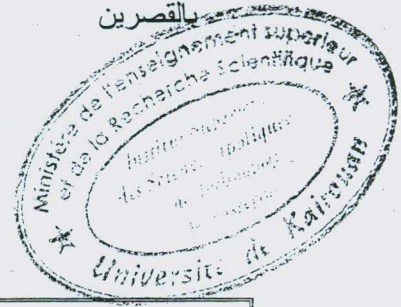 بالقصرين
Ministère de l'enseignement supérieur
et de la Recherche Scientifique
Institut
des Sciences Appliquées
de
Université de Kairouan